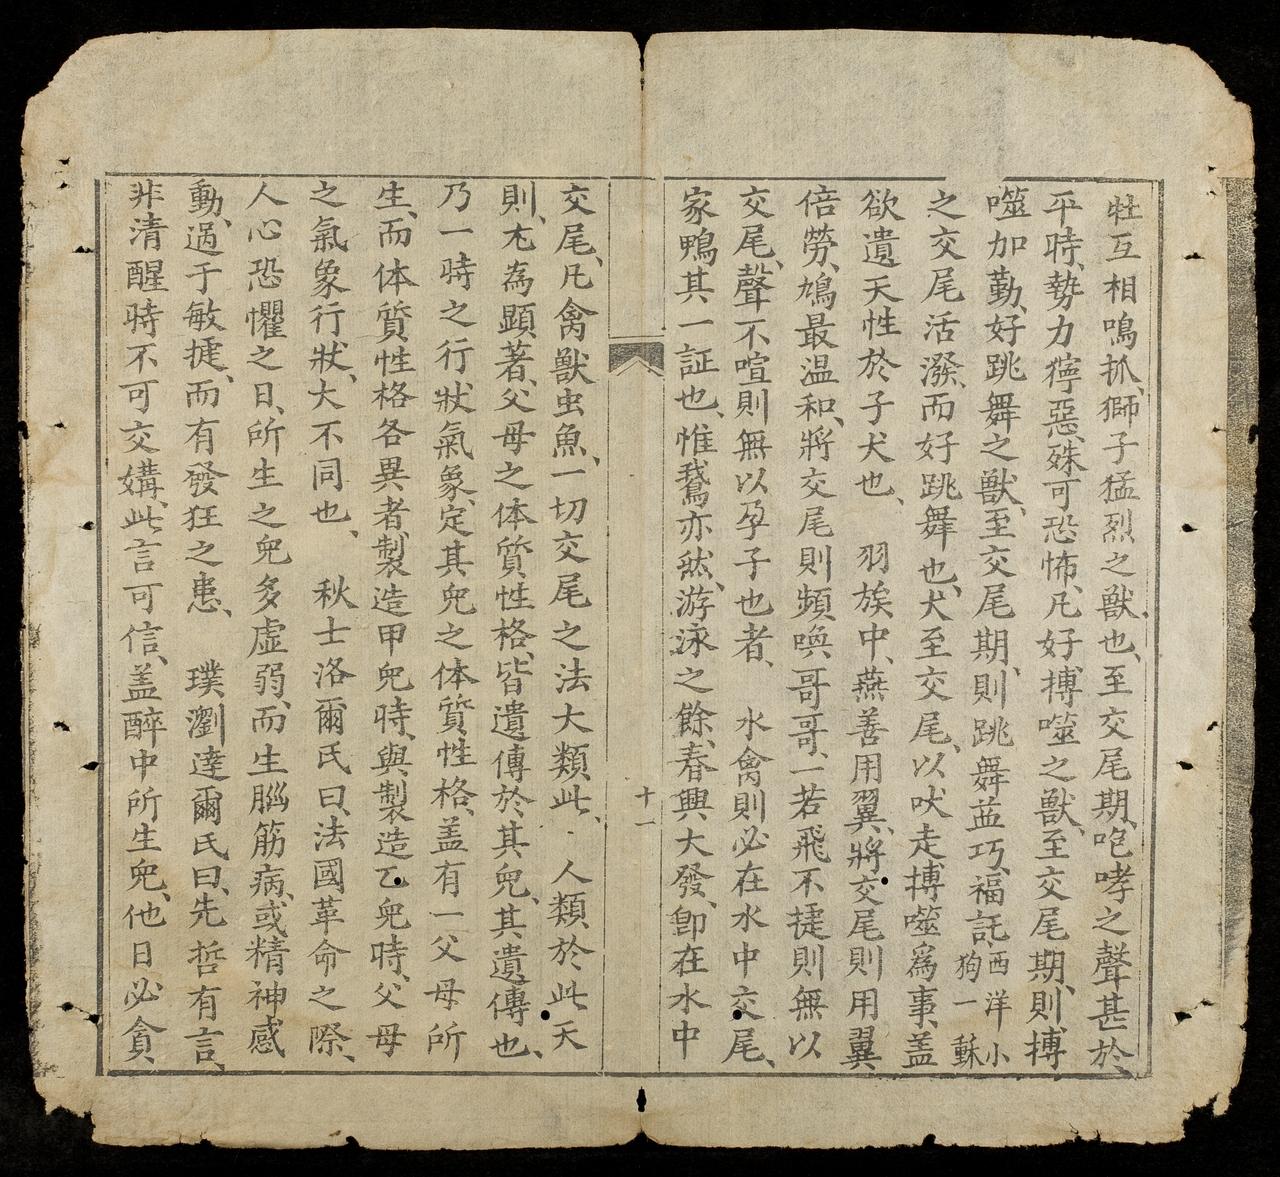 牡互相鳴抓、獅子猛烈之獸也、至交尾期、咆哮之聲甚於、
平時、勢力獰惡、殊可恐怖、凡好搏噬之獸、至交尾期、則搏
噬加勤、好跳舞之獸、至交尾期、則跳舞益巧、福託、西洋小狗一穌
之交尾活潑、而好跳舞也、犬至交尾、以吠走搏噬爲事、蓋
欲遺天性於子犬也、　羽族中、燕善用翼、將交尾則用翼
倍勞、鳩最温和、將交尾則頻喚哥哥、一若飛不捷則無以
交尾、聲不喧則無以孕子也者、　水禽則必在水中交尾、
家鴨其一証也、惟鵞亦然、游泳之餘、春興大發、卽在水中
十一
交尾、凡禽獸虫魚、一切交尾之法大類此、　人類於此天
則、尤為顕著、父母之体質性格、皆遺傳於其兒、其遺傳也、
乃一時之行狀氣象、定其兒之体質性格、盖有一父母所
生、而体質性格各異者、製造甲兒時、與製造乙兒時、父母
之氣象行狀、大不同也、　秋士洛爾氏曰、法國革命之際、
人心恐懼之日、所生之兒多虚弱、而生腦筋病、或精神感
動、過于敏捷、而有發狂之患、　璞瀏達爾氏曰、先哲有言、
非清醒時不可交媾、此言可信、盖醉中所生兒、他日必貪